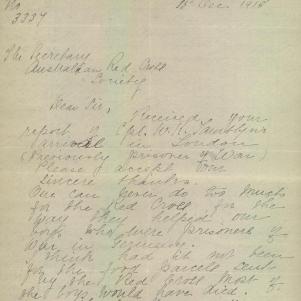 No
3334
15 Dec. 1918
The Secretary
Australian Red Cross
Society
Dear Sir,
Received your
report of Cpl. W. Tamblyn's
arrival in London
(Previously prisoner of War)
Please accept our
sincere thanks.
One can never do too much
for the Red Cross for the
way they helped our
boys who were prisoners of
War in Germany.
I think had it not been
for the food parcels sent
by the Red Cross most of
the boys would have died.